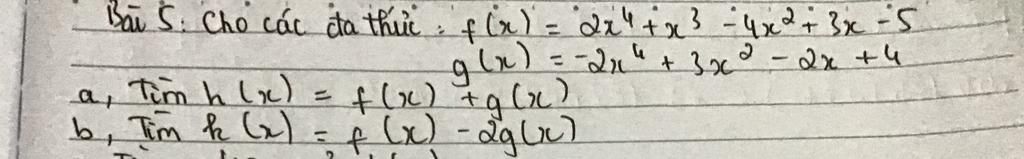 Bài 5: Cho các đa thức: f(x) = 2x⁴ + x³ - 4x² + 3x - 5
g(x) = -2x⁴ + 3x² - 2x + 4
a, Tìm h(x) = f(x) + g(x)
b, Tìm k(x) = f(x) - 2g(x)